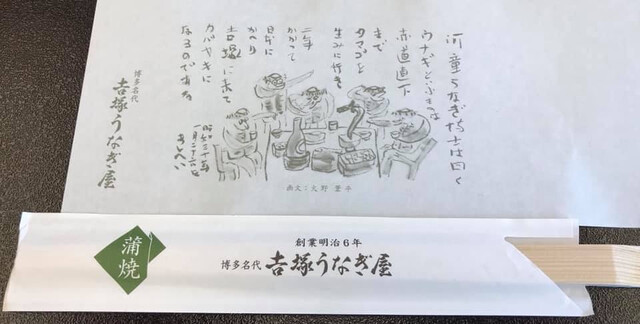 河童うなぎ博士は曰く
ウナギというものは
赤道直下
まで
タマゴを
生みに行き
三年
かかって
日本に
かへり
吉塚に来て
カバヤキに
なるのである
一月二十六日
博多名代
吉塚うなぎ屋
画文:火野葦平
蒲焼
創業明治6年
博多名代 吉塚うなぎ屋